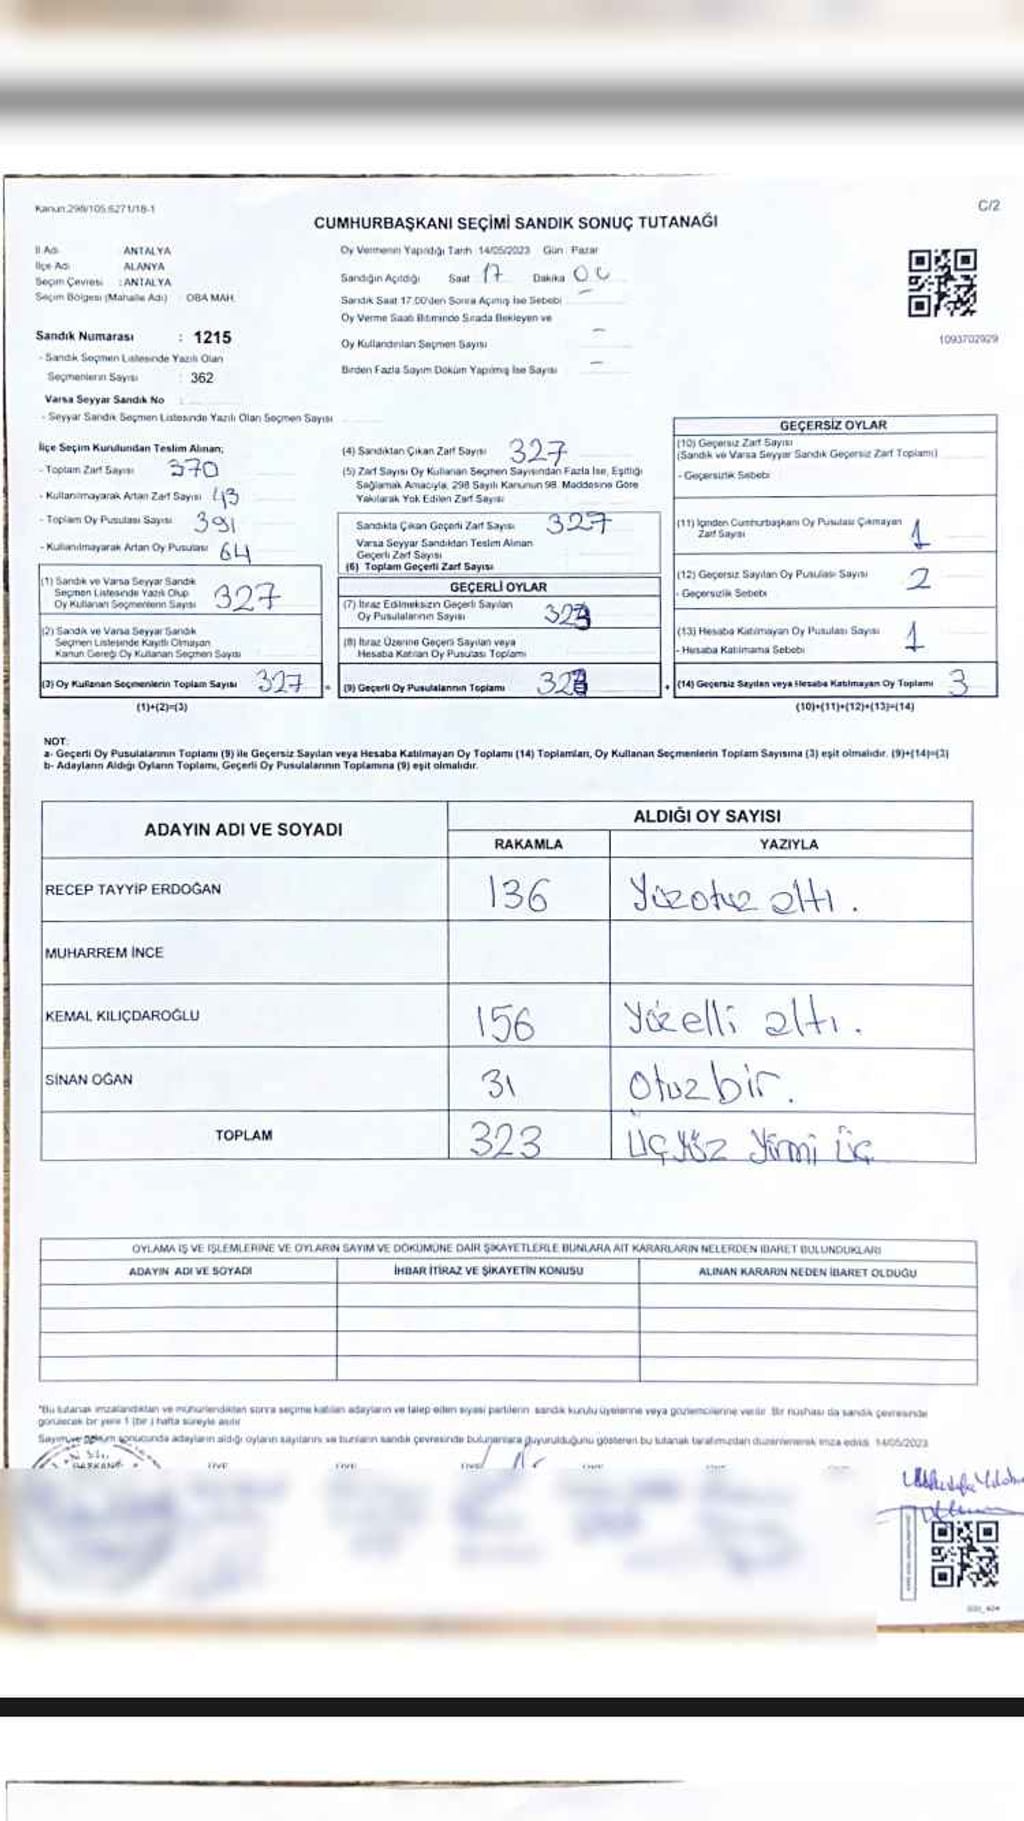 Kanun:298/105.6271/18-1
C/2
CUMHURBAŞKANI SEÇİMİ SANDIK SONUÇ TUTANAĞI
İl Adı ANTALYA
İlçe Adı ALANYA
Seçim Çevresi : ANTALYA
Seçim Bölgesi (Mahalle Adı) : OBA MAH.
Oy Vermenin Yapıldığı Tarih 14/05/2023 Gün : Pazar
Sandığın Açıldığı Saat 17 Dakika 00
Sandık Saat 17.00'den Sonra Açılmış İse Sebebi
Oy Verme Saati Bitiminde Sırada Bekleyen ve
Oy Kullandırılan Seçmen Sayısı
Birden Fazla Sayım Döküm Yapılmış İse Sayısı
1093702929
Sandık Numarası : 1215
- Sandık Seçmen Listesinde Yazılı Olan
Seçmenlerin Sayısı : 362
Varsa Seyyar Sandık No :
- Seyyar Sandık Seçmen Listesinde Yazılı Olan Seçmen Sayısı
İlçe Seçim Kurulundan Teslim Alınan;
- Toplam Zarf Sayısı 370
- Kullanılmayarak Artan Zarf Sayısı 43
- Toplam Oy Pusulası Sayısı 391
- Kullanılmayarak Artan Oy Pusulası 64
(1) Sandık ve Varsa Seyyar Sandık
Seçmen Listesinde Yazılı Olup
Oy Kullanan Seçmenlerin Sayısı 327
(2) Sandık ve Varsa Seyyar Sandık
Seçmen Listesinde Kayıtlı Olmayan
Kanun Gereği Oy Kullanan Seçmen Sayısı
(3) Oy Kullanan Seçmenlerin Toplam Sayısı 327
(1)+(2)=(3)
(4) Sandıktan Çıkan Zarf Sayısı 327
(5) Zarf Sayısı Oy Kullanan Seçmen Sayısından Fazla İse, Eşitliği
Sağlamak Amacıyla, 298 Sayılı Kanunun 98. Maddesine Göre
Yakılarak Yok Edilen Zarf Sayısı
Sandıkta Çıkan Geçerli Zarf Sayısı 327
Varsa Seyyar Sandıktan Teslim Alınan
Geçerli Zarf Sayısı
(6) Toplam Geçerli Zarf Sayısı
GEÇERLİ OYLAR
(7) İtiraz Edilmeksizin Geçerli Sayılan
Oy Pusulalarının Sayısı 323
(8) İtiraz Üzerine Geçerli Sayılan veya
Hesaba Katılan Oy Pusulası Toplamı
= (9) Geçerli Oy Pusulalarının Toplamı 323
GEÇERSİZ OYLAR
(10) Geçersiz Zarf Sayısı
(Sandık ve Varsa Seyyar Sandık Geçersiz Zarf Toplamı)
- Geçersizlik Sebebi
(11) İçinden Cumhurbaşkanı Oy Pusulası Çıkmayan
Zarf Sayısı 1
(12) Geçersiz Sayılan Oy Pusulası Sayısı 2
- Geçersizlik Sebebi
(13) Hesaba Katılmayan Oy Pusulası Sayısı 1
- Hesaba Katılmama Sebebi
+ (14) Geçersiz Sayılan veya Hesaba Katılmayan Oy Toplamı 3
(10)+(11)+(12)+(13)=(14)
NOT:
a- Geçerli Oy Pusulalarının Toplamı (9) ile Geçersiz Sayılan veya Hesaba Katılmayan Oy Toplamı (14) Toplamları, Oy Kullanan Seçmenlerin Toplam Sayısına (3) eşit olmalıdır. (9)+(14)=(3)
b- Adayların Aldığı Oyların Toplamı, Geçerli Oy Pusulalarının Toplamına (9) eşit olmalıdır.
ADAYIN ADI VE SOYADI ALDIĞI OY SAYISI
RAKAMLA YAZIYLA
RECEP TAYYİP ERDOĞAN 136 Yüzotuz altı.
MUHARREM İNCE
KEMAL KILIÇDAROĞLU 156 Yüzelli altı.
SİNAN OĞAN 31 Otuzbir.
TOPLAM 323 ÜÇ Yüz Yirmi üç
OYLAMA İŞ VE İŞLEMLERİNE VE OYLARIN SAYIM VE DÖKÜMÜNE DAİR ŞİKAYETLERLE BUNLARA AİT KARARLARIN NELERDEN İBARET BULUNDUKLARI
ADAYIN ADI VE SOYADI İHBAR İTİRAZ VE ŞİKAYETİN KONUSU ALINAN KARARIN NEDEN İBARET OLDUĞU
*Bu tutanak imzalandıktan ve mühürlendikten sonra seçime katılan adayların ve talep eden siyasi partilerin sandık kurulu üyelerine veya gözlemcilerine verilir. Bir nüshası da sandık çevresinde
görülecek bir yere 1 (bir) hafta süreyle asılır
Sayım ve döküm sonucunda adayların aldığı oyların sayılarını ve bunların sandık çevresinde bulunanlara duyurulduğunu gösteren bu tutanak tarafımızdan düzenlenerek imza edildi. 14/05/2023
BAŞKANI